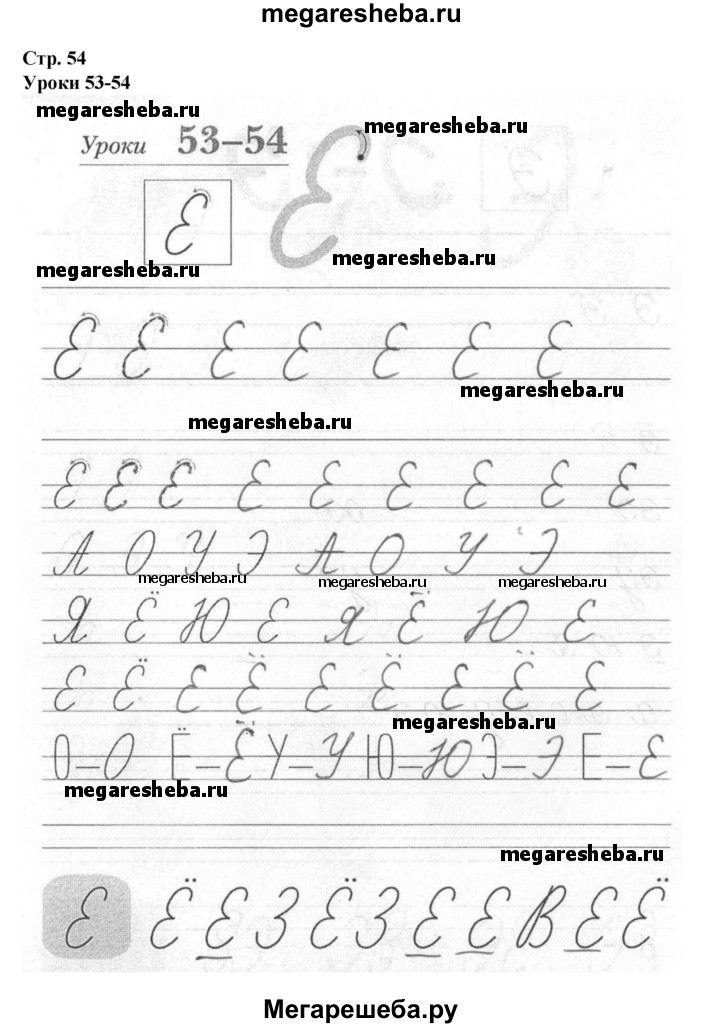 megaresheba.ru
Стр. 54
Уроки 53-54
megaresheba.ru
Уроки 53–54
megaresheba.ru
Е
Е
megaresheba.ru
megaresheba.ru
Е Е Е Е Е Е Е
megaresheba.ru
megaresheba.ru
Е Е Е Е Е Е Е Е Е
А О У Э А О У Э
megaresheba.ru megaresheba.ru megaresheba.ru
Я Ё Ю Е Я Ё Ю Е
Е Ё Е Ё Е Ё Е Ё Е
megaresheba.ru
О–О Ё–Ё У–У Ю–Ю Э–Э Е–Е
megaresheba.ru
megaresheba.ru
Е Ё Е З Ё З Е Е В Е Ё
Мегарешеба.ру